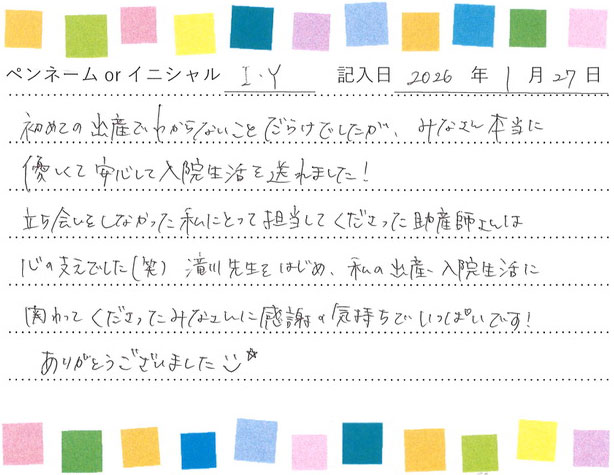 ペンネーム or イニシャル I・Y 記入日 2026 年 1 月 27 日
初めての出産でわからないことだらけでしたが、みなさん本当に
優しくて安心して入院生活を送れました!
立ち会いをしなかった私にとって担当してくださった助産師さんは
心の支えでした(笑) 滝川先生をはじめ、私の出産、入院生活に
関わってくださったみなさんに感謝の気持ちでいっぱいです!
ありがとうございました